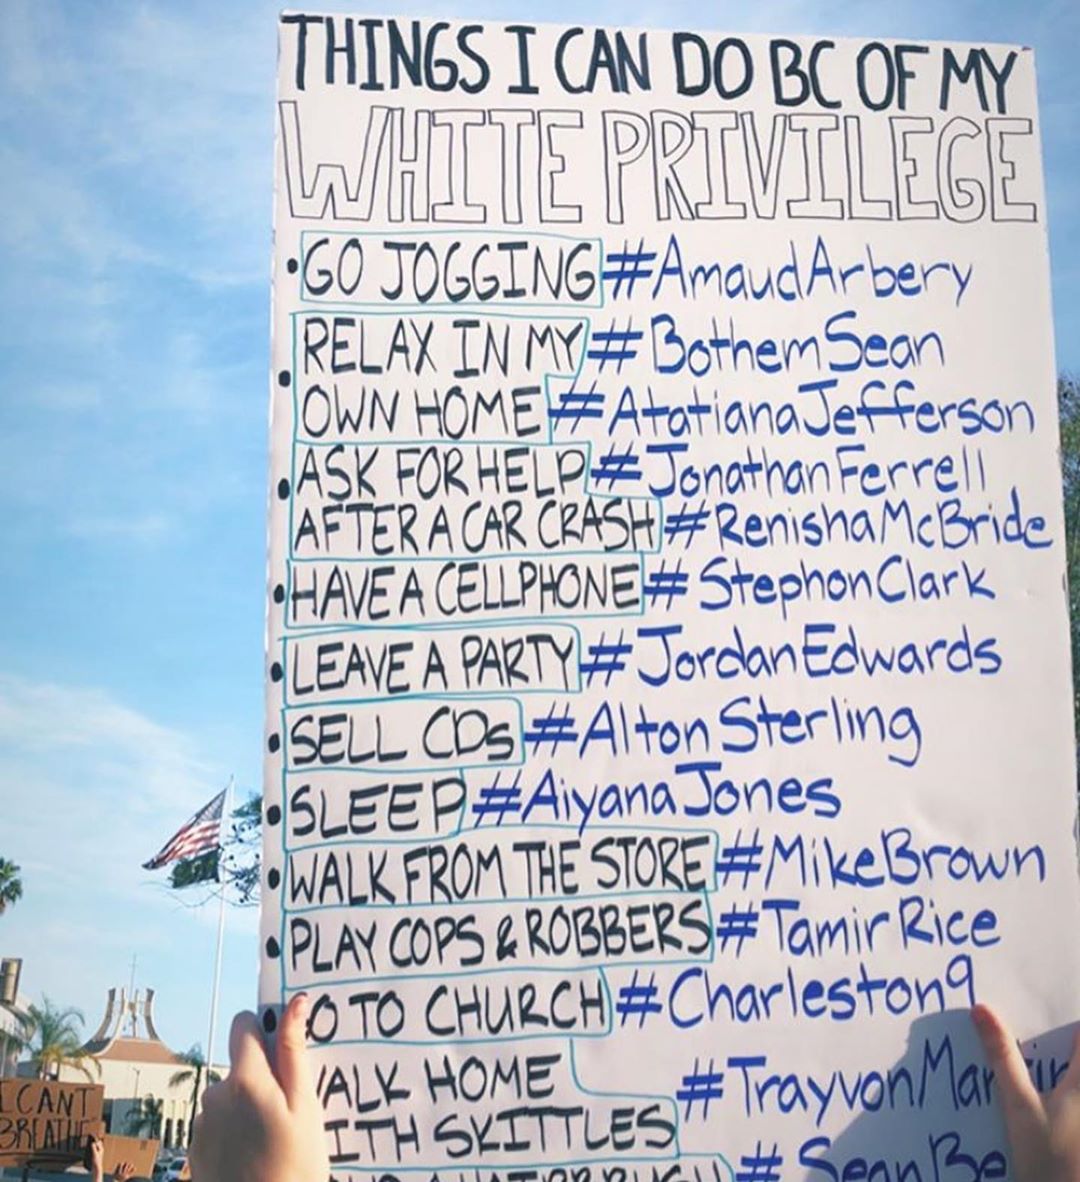 THINGS I CAN DO BC OF MY
WHITE PRIVILEGE
• GO JOGGING #AmaudArbery
• RELAX IN MY #BothemSean
OWN HOME #AtatianaJefferson
• ASK FOR HELP #JonathanFerrell
AFTER A CAR CRASH #RenishaMcBride
• HAVE A CELLPHONE #StephonClark
• LEAVE A PARTY #JordanEdwards
• SELL CDs #AltonSterling
• SLEEP #AiyanaJones
• WALK FROM THE STORE #MikeBrown
• PLAY COPS & ROBBERS #TamirRice
• GO TO CHURCH #Charleston9
WALK HOME #TrayvonMartin
WITH SKITTLES
#SeanBe
I CANT
BREATHE